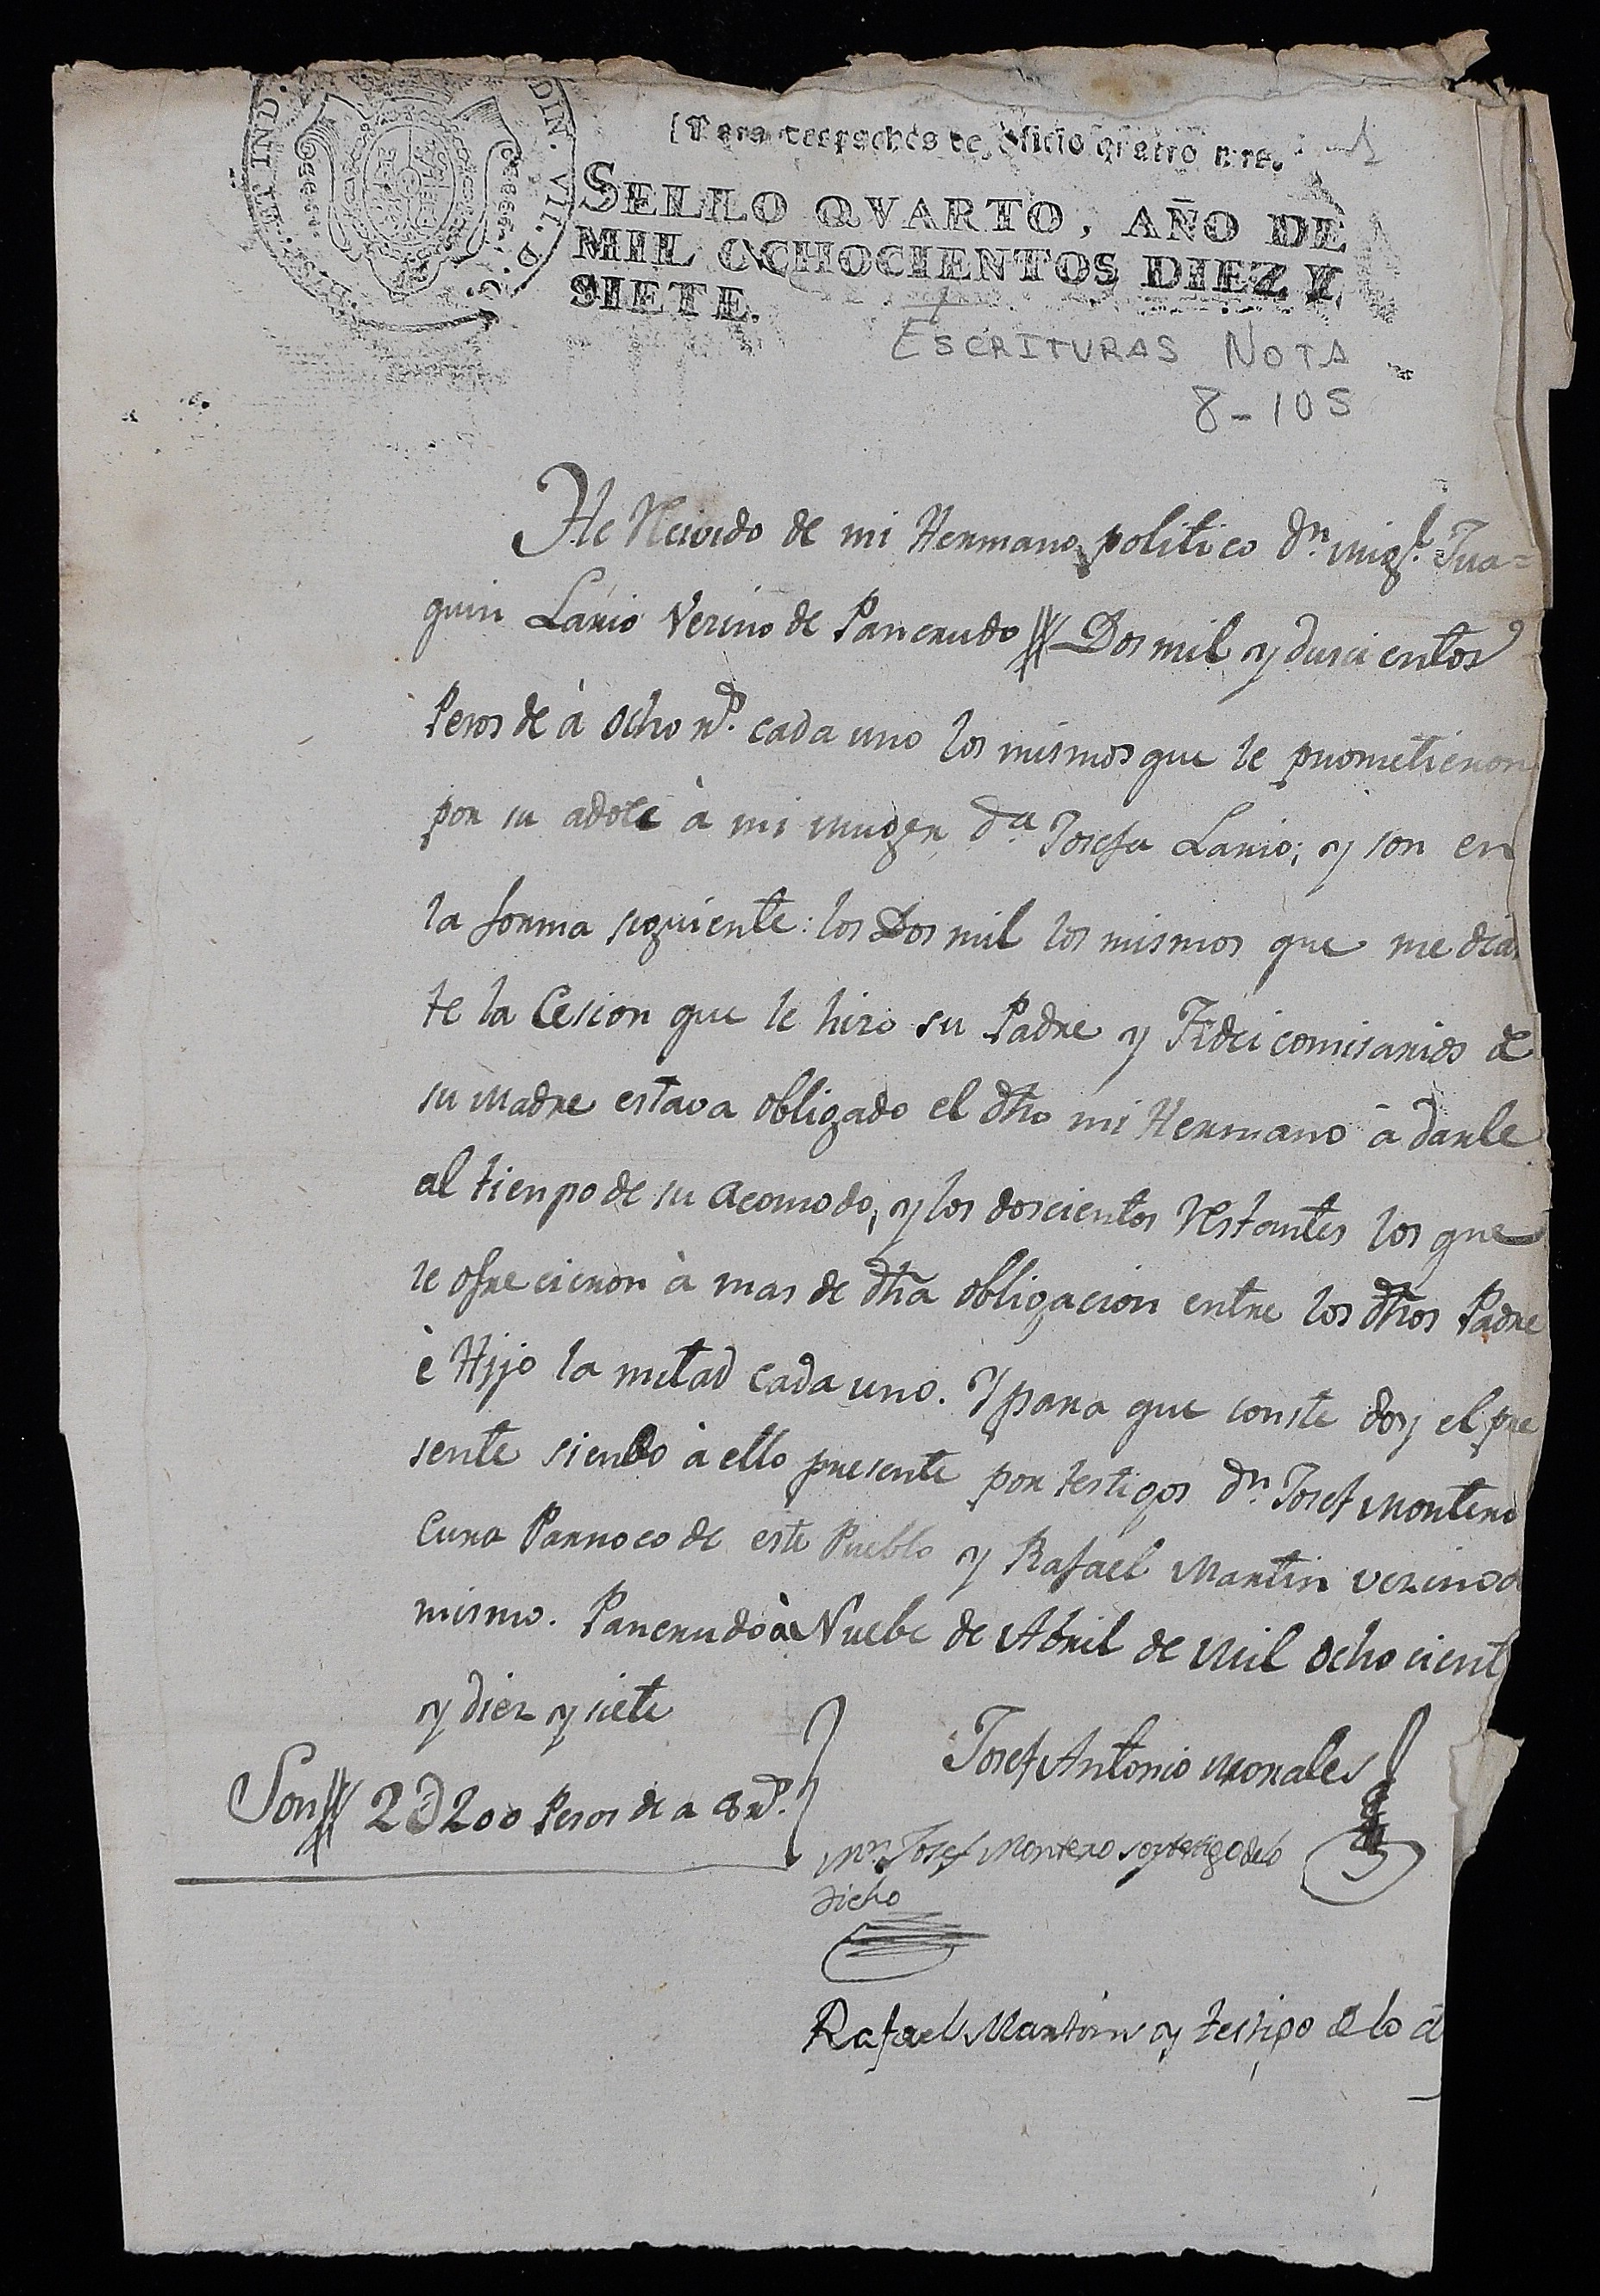 DIN. VII. D. G.
DIS. ET IND.
Para despachos de Oficio quatro mrs.
SELLO QVARTO, AÑO DE
MIL OCHOCIENTOS DIEZ Y
SIETE.
ESCRITURAS NOTA
8-105
He Recivido de mi Hermano politico Dn. Migl. Jua=
quin Lario Vezino de Pancrudo Dos mil y duscientos
Pesos de à Ocho rs. cada uno los mismos que le prometieron
por su adote à mi muger Da. Josefa Lario; y son en
la forma siguiente: los Dos mil los mismos que median
te la Cesion que le hizo su Padre y Fideicomisarios de
su Madre estava obligado el dho mi Hermano à darle
al tienpo de su acomodo, y los doscientos Restantes los que
le ofrecieron à mas de dha obligacion entre los dhos Padre
è Hijo la mitad cada uno. Y para que conste doy el pre
sente siendo à ello presente por testigos Dn. Josef Montero
Cura Parroco de este Pueblo y Rafael Martin vezino d
mismo. Pancrudo à Nuebe de Abril de Mil ocho cient
y diez y siete
Josef Antonio Morales
Son 2D200 Pesos de a 8 rs.
Mn. Josef Montero soy testigo de lo
dicho
Rafael Martin y testigo de lo d